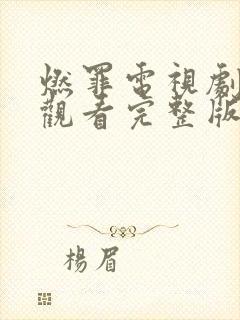 燃罪電視劇
觀看完整版
楊眉